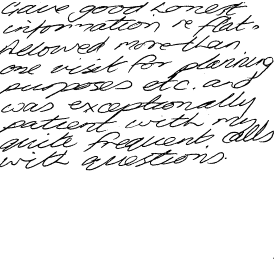 Gave good honest
information re flat.
Allowed more than
one visit for planning
purposes etc. and
was exceptionally
patient with my
quite frequent calls
with questions.